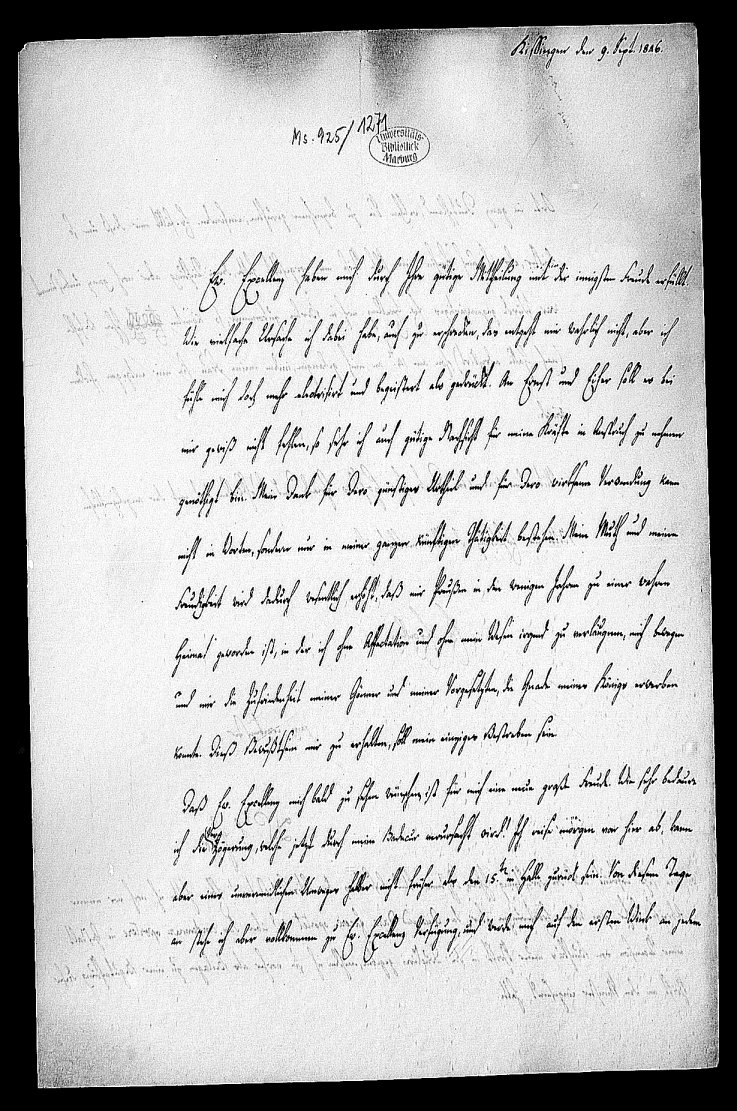 Kissingen den 9. Sept. 1846.
Ms. 925/1271
Universitäts-
Bibliothek
Marburg
Ew. Excellenz haben mich durch Ihre gütige Mittheilung mit der innigsten Freude erfüllt.
Wie vielfache Ursache ich dabei habe, auch zu erschrecken, das entgeht mir wahrlich nicht, aber ich
fühle mich doch mehr electrisirt und begeistert als gedrückt. An Ernst und Eifer soll es bei
mir gewiß nicht fehlen, so sehr ich auch gütige Nachsicht für meine Kräfte in Anspruch zu nehmen
genöthigt bin. Mein Dank für Dero günstiges Urtheil und für Dero wirksame Verwendung kann
nicht in Worten, sondern nur in meiner ganzen künftigen Thätigkeit bestehen. Mein Muth und meine
Freudigkeit wird dadurch wesentlich erhöht, daß mir Preußen in den wenigen Jahren zu einer wahren
Heimat geworden ist, in der ich ohne Affectation und ohne mein Wesen irgend zu verläugnen, mich bewegen
und mir die Zufriedenheit meiner Gönner und meiner Vorgesetzten, die Gnade meines Königs erwerben
konnte. Dieß Bewußtsein mir zu erhalten, soll mein einziges Bestreben sein.
Daß Ew. Excellenz mich bald zu sehen wünschen, ist für mich eine neue große Freude. Wie sehr bedaure
ich die Zögerung, welche jetzt durch meine Badecur verursacht wird! Ich reise morgen von hier ab, kann
aber eines unvermeidlichen Umweges halber nicht früher als den 15. in Halle zurück sein. Von diesem Tage
an stehe ich aber vollkommen zu Ew. Excellenz Verfügung, und werde mich auf den ersten Wink an jedem